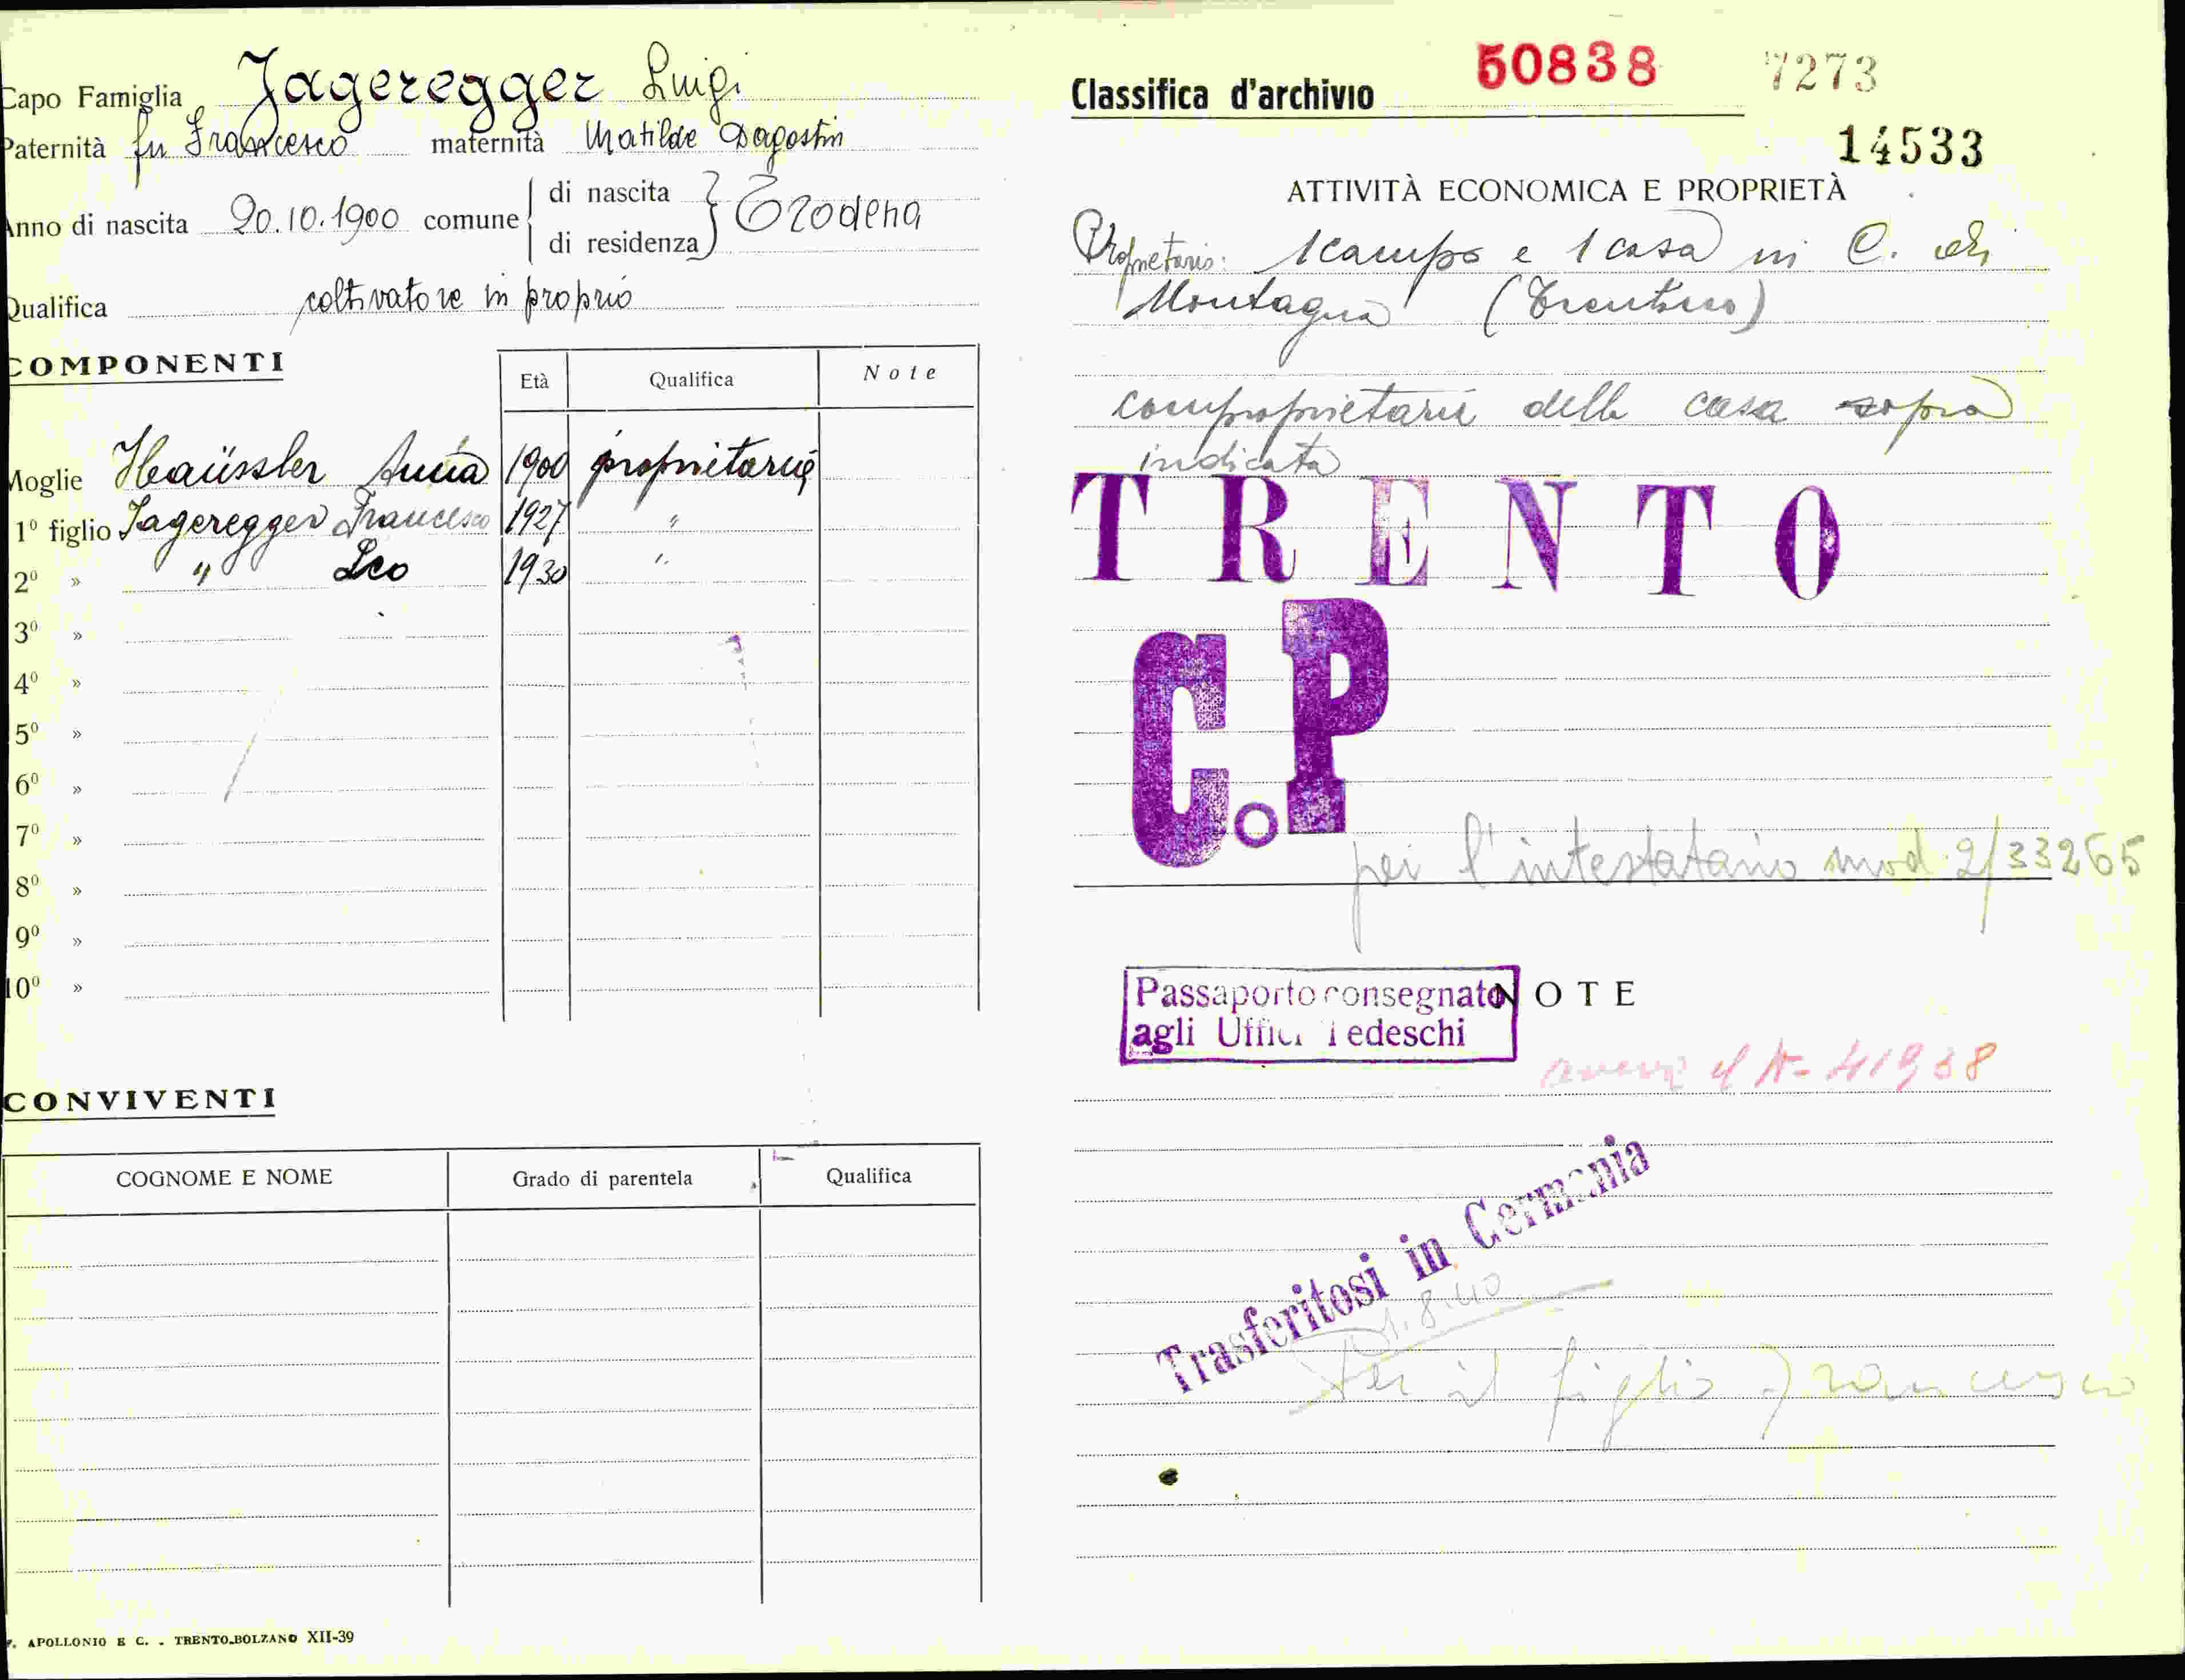 Capo Famiglia Jageregger Luigi
Paternità fu Francesco maternità Matilde Dagostin
Anno di nascita 20.10.1900 comune di nascita di residenza Trodena
Qualifica coltivatore in proprio
COMPONENTI
Età Qualifica Note
Moglie Haüssler Anna 1900 proprietaria
1º figlio Jageregger Francesco 1927 "
2º » " Leo 1930 "
3º »
4º »
5º »
6º »
7º »
8º »
9º »
10º »
CONVIVENTI
COGNOME E NOME Grado di parentela Qualifica
. APOLLONIO E C. - TRENTO-BOLZANO XII-39
Classifica d'archivio 50838 7273
14533
ATTIVITÀ ECONOMICA E PROPRIETÀ
Proprietario: 1 campo e 1 casa in C. di
Montagna (Trentino)
comproprietari della casa sopra
indicata
TRENTO
C.P
per l'intestatario mod. 2/33265
Passaporto consegnato
agli Uffici Tedeschi
NOTE
N- 41938
Trasferitosi in Germania
8.40
Per il figlio Francesco